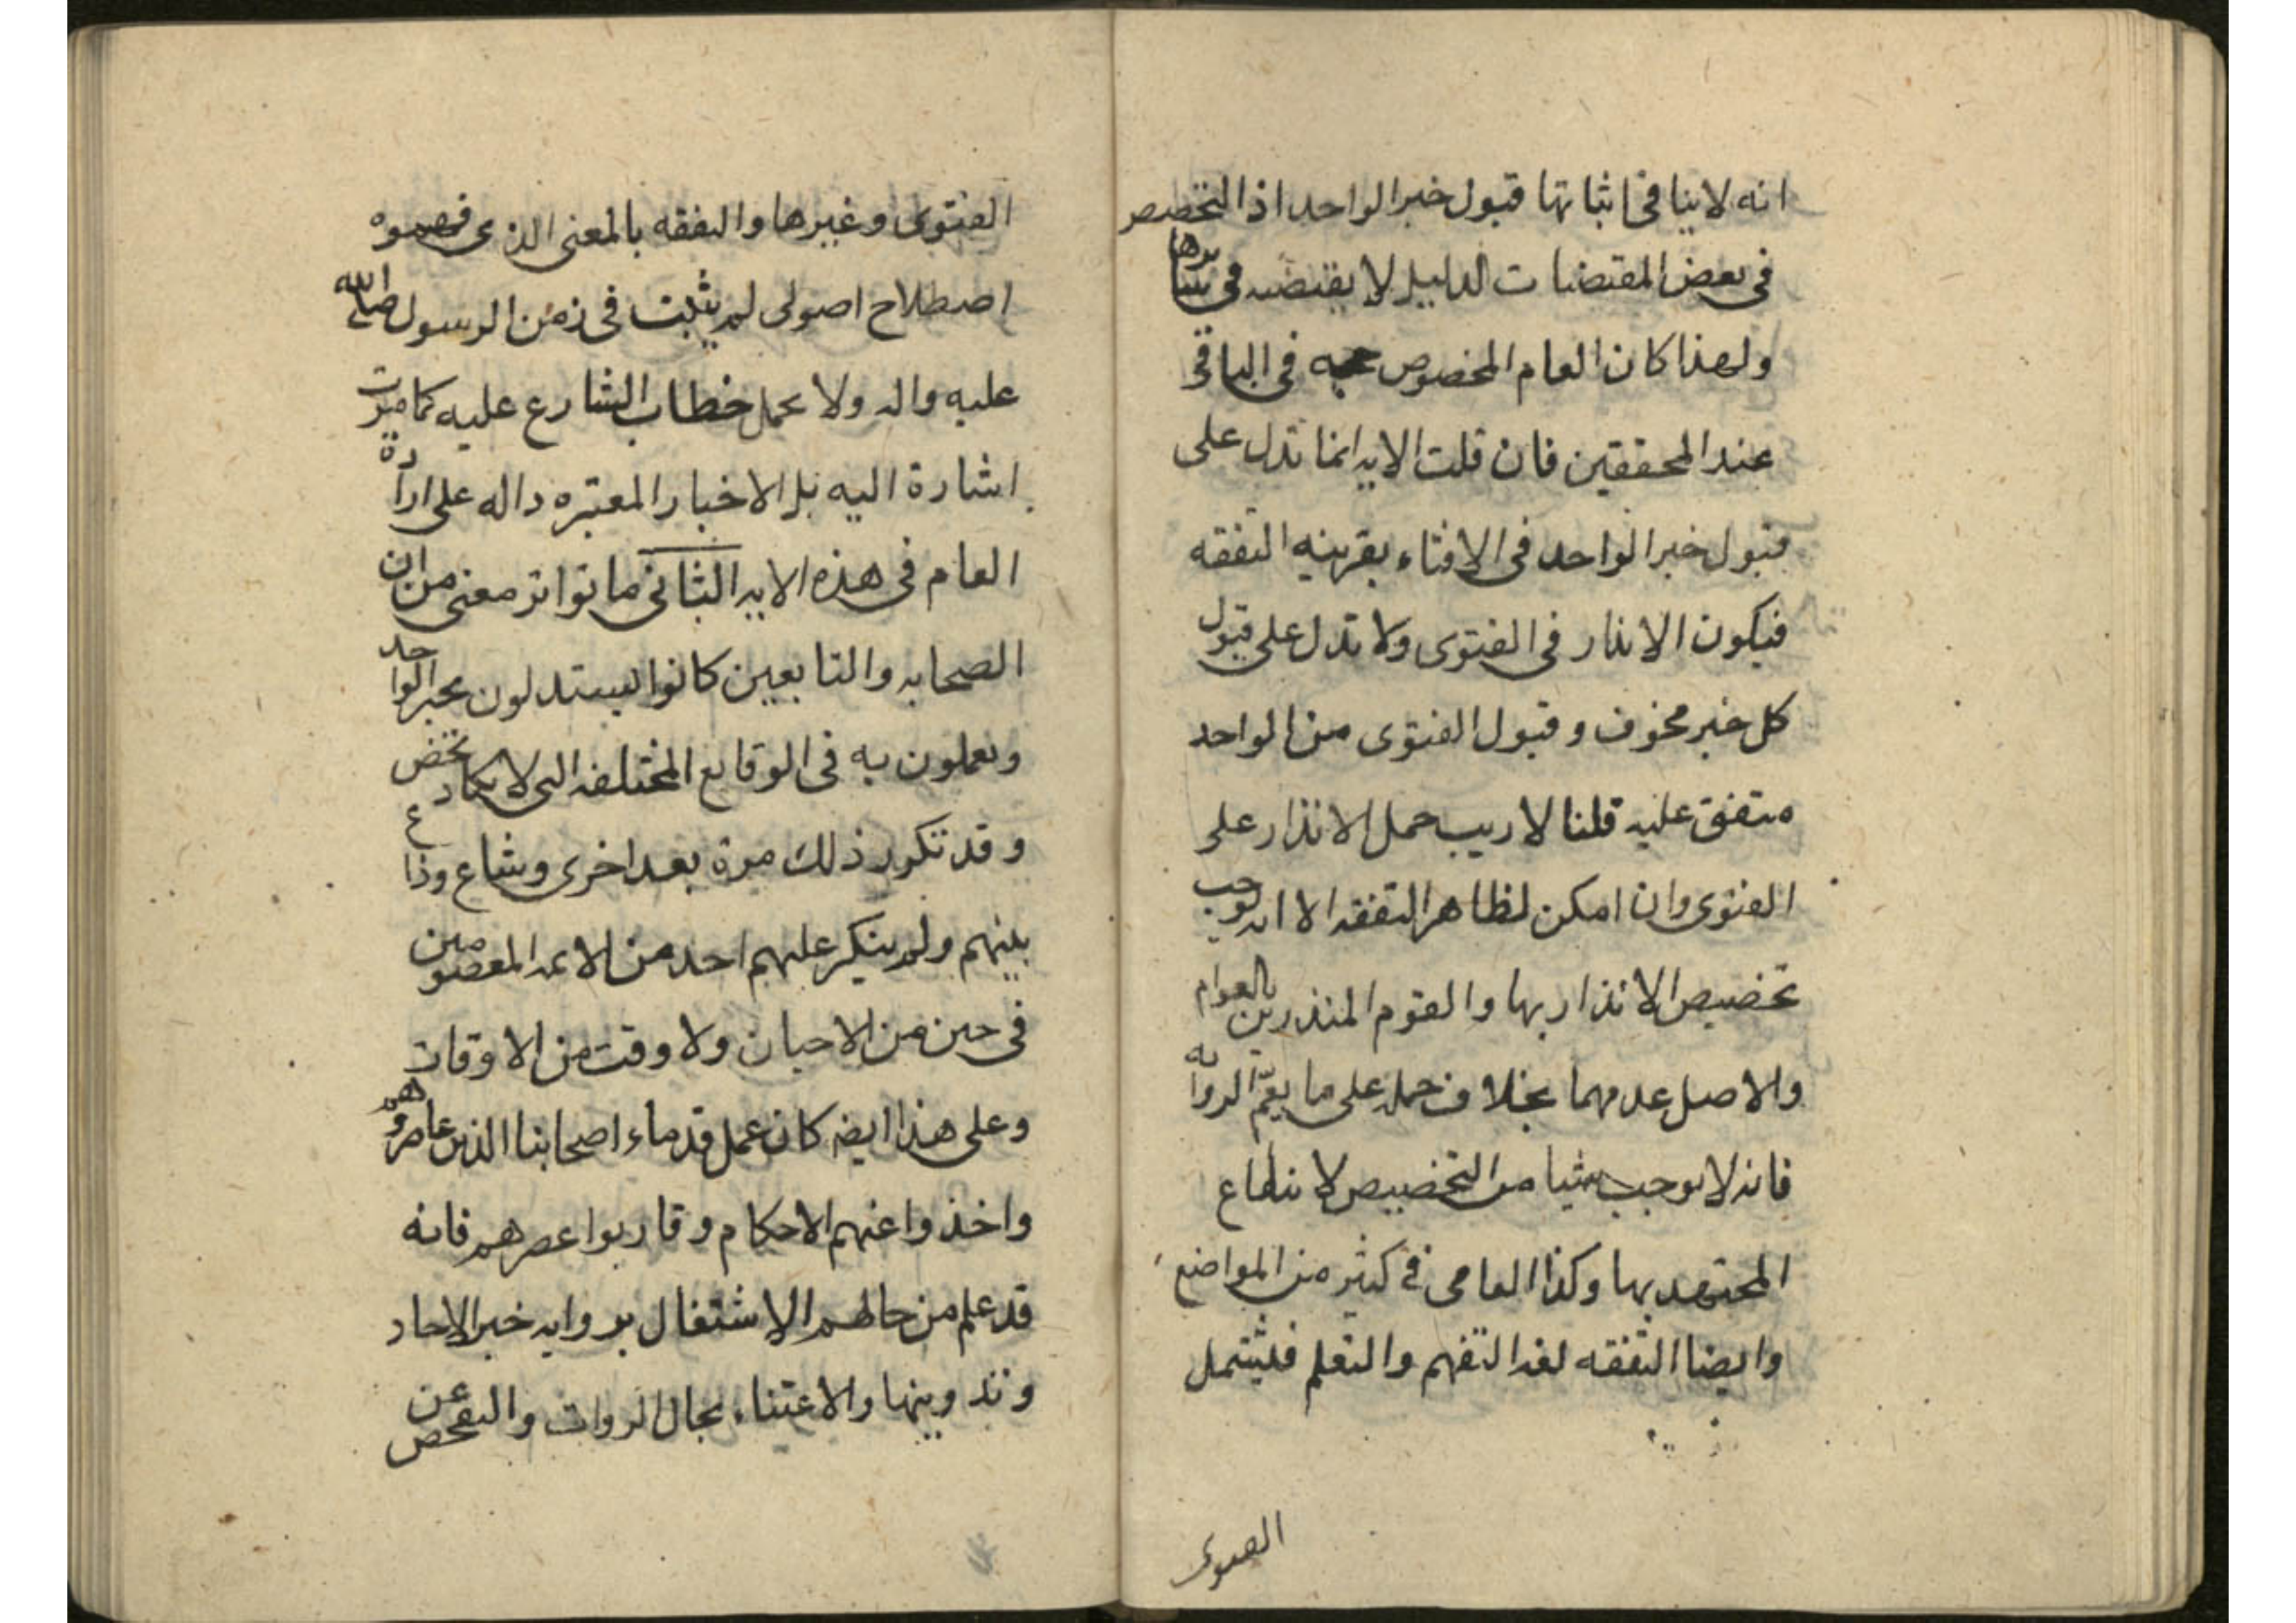 انه لاينافى اثباتها قبول خبر الواحد اذ التخصيص
فى بعض المقتضات الدليل لا يقتضيه فى
ولهذا كان العام المخصوص حجه فى الباقى
عند المحققين فان قلت الايه انما تدل على
قبول خبر الواحد فى الافتاء بقرينه التفقه
فيكون الانذار فى الفتوى ولا تدل على قبول
كل خبر مخوف و قبول الفتوى من الواحد
متفق عليه قلنا لا ريب حمل الانذار على
الفتوى وان امكن لظاهر التفقه الا انه يوجب
تخصيص الانذار بها والقوم المنذرين بالعوام
والاصل عدمهما بخلاف حمله على ما يعمّ الروايه
فانه لا يوجب شيا من التخصيص لانتفاع
المجتهد بها وكذا العامى فى كثير من المواضع
وايضا التفقه لغه التفهم والتعلم فليشمل
الفتوى
الفتوى وغيرها والتفقه بالمعنى الذى فهموه
اصطلاح اصولى لم يثبت فى زمن الرسول صلى الله
عليه واله ولا يحمل خطاب الشارع عليه كما مرت
اشارة اليه بل الاخبار المعتبره داله على ارادة
العام فى هذه الايه الثانى ما تواتر معنى من ان
الصحابه والتابعين كانوا يستدلون بخبر الواحد
ويعملون به فى الوقايع المختلفه التى لا يكاد تخص
وقد تكرر ذلك مرة بعد اخرى وشاع وذاع
بينهم ولم ينكر عليهم احد من الائمه المعصومين
فى حين من الاحيان ولا وقت من الاوقات
وعلى هذا ايضه كان عمل قدماء اصحابنا الذين عاصروهم
واخذوا عنهم الاحكام و قاربوا عصرهم فانه
قد علم من حالهم الاشتغال بروايه خبر الاحاد
وتدوينها والاعتناء بحال الروات والتفحص عن